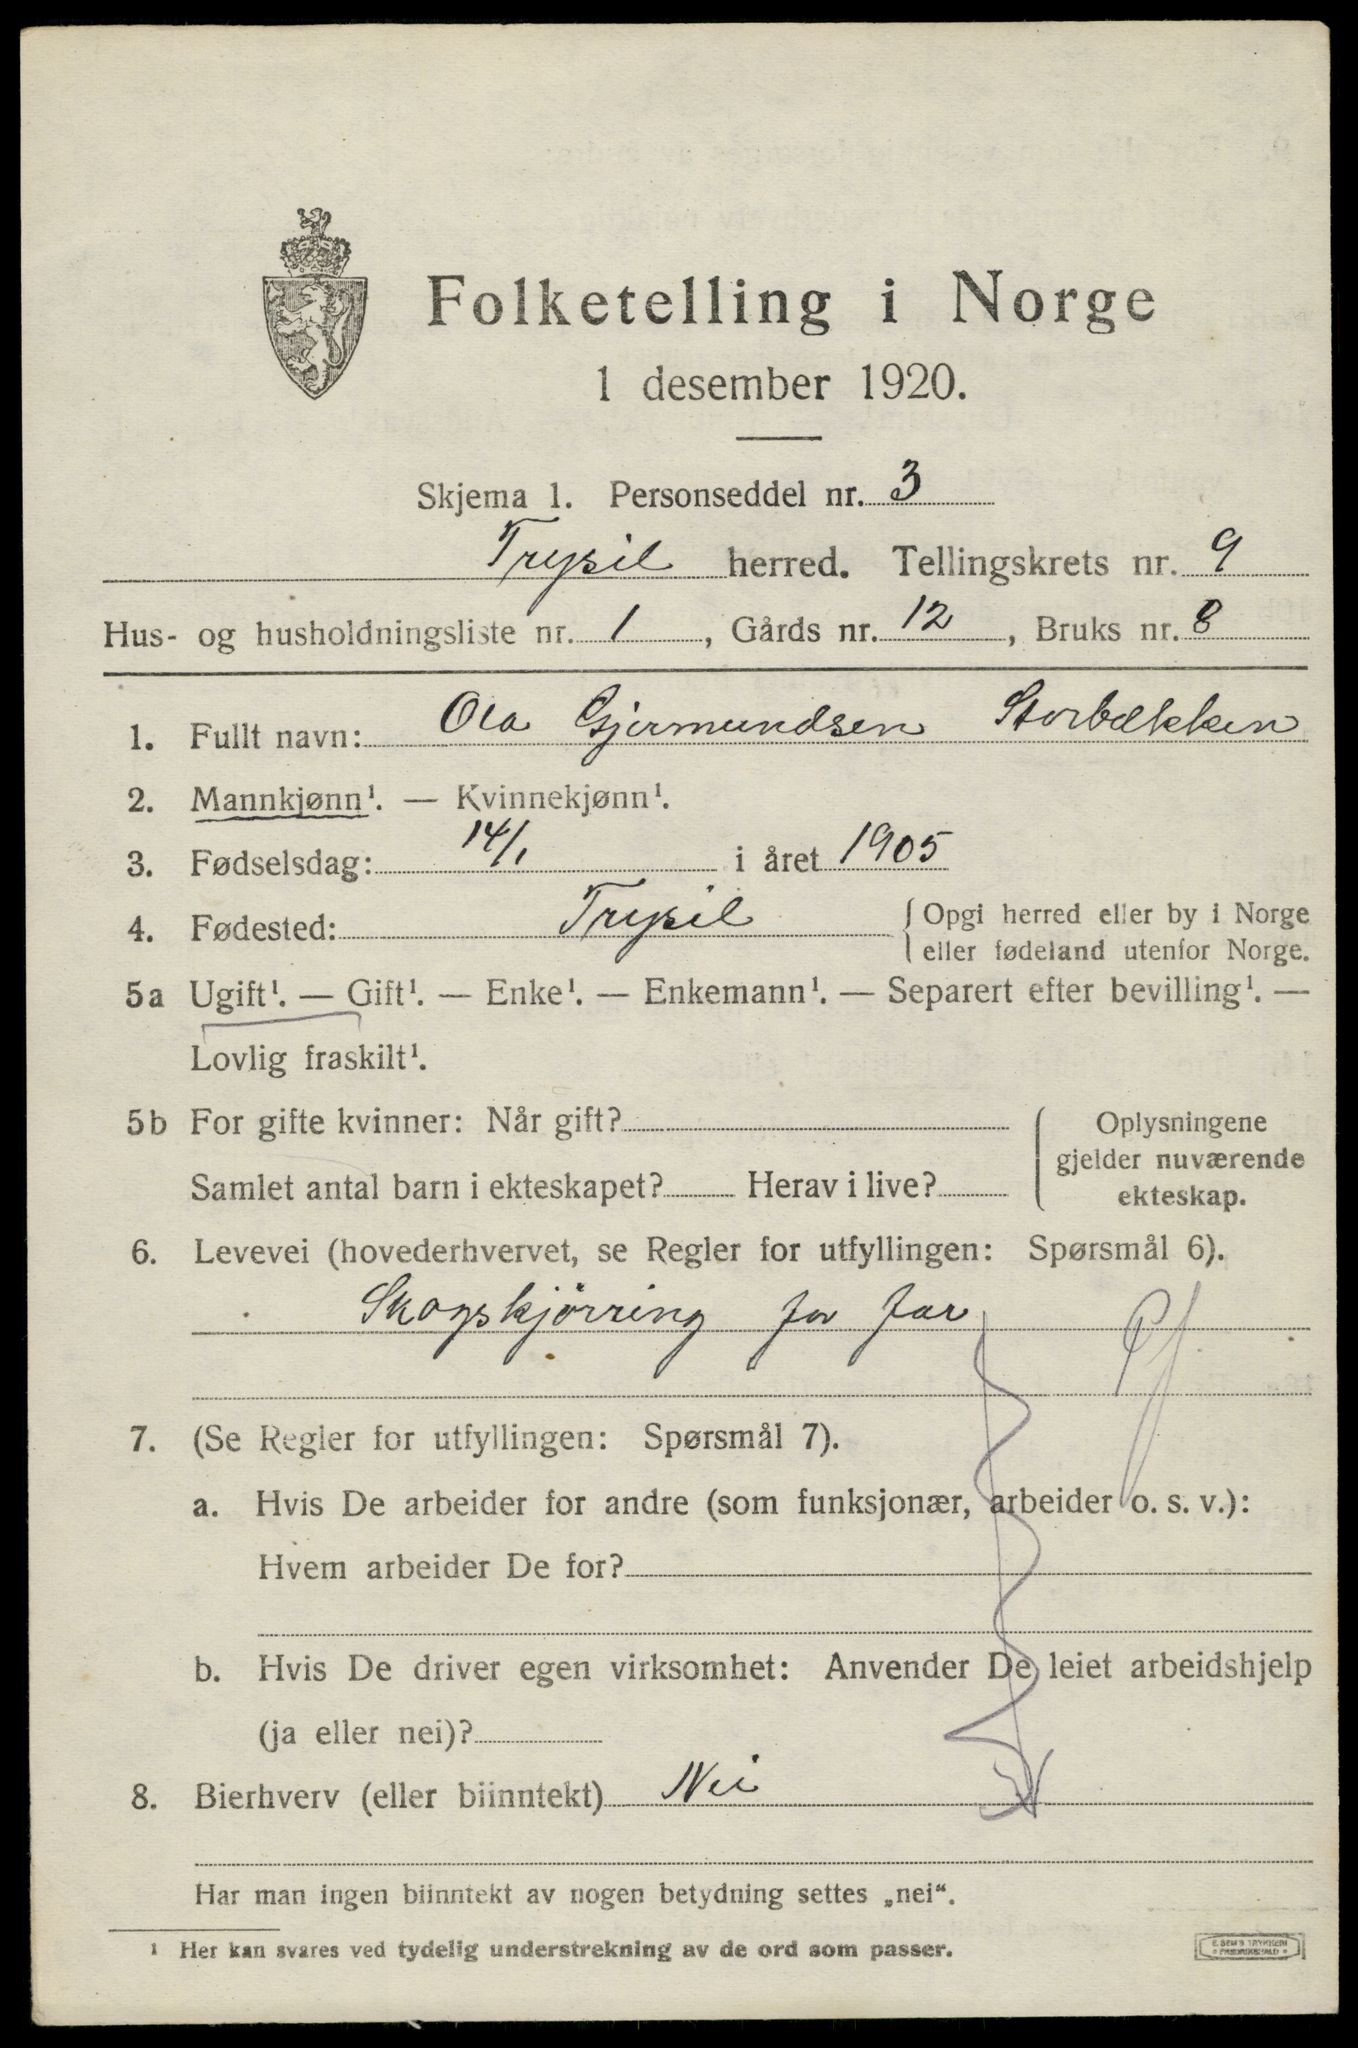 Folketelling i Norge
1 desember 1920.
Skjema 1. Personseddel nr. 3
Trysil herred. Tellingskrets nr. 9
Hus- og husholdningsliste nr. 1, Gårds nr. 12, Bruks nr. 8
1. Fullt navn: Ola Gjermundsen Storbækken
2. Mannkjønn¹. — Kvinnekjønn¹.
3. Fødselsdag: 14/1 i året 1905
4. Fødested: Trysil { Opgi herred eller by i Norge
eller fødeland utenfor Norge.
5a Ugift¹. — Gift¹. — Enke¹. — Enkemann¹. — Separert efter bevilling¹. —
Lovlig fraskilt¹.
5b For gifte kvinner: Når gift?
Samlet antal barn i ekteskapet? Herav i live?
Oplysningene
gjelder nuværende
ekteskap.
6. Levevei (hovederhvervet, se Regler for utfyllingen: Spørsmål 6).
Skogskjörring for far
7. (Se Regler for utfyllingen: Spørsmål 7).
a. Hvis De arbeider for andre (som funksjonær, arbeider o. s. v.):
Hvem arbeider De for?
b. Hvis De driver egen virksomhet: Anvender De leiet arbeidshjelp
(ja eller nei)?
8. Bierhverv (eller biinntekt) Nei
Har man ingen biinntekt av nogen betydning settes „nei“.
¹ Her kan svares ved tydelig understrekning av de ord som passer.
E. SEM'S TRYKKERI
FREDRIKSHALD